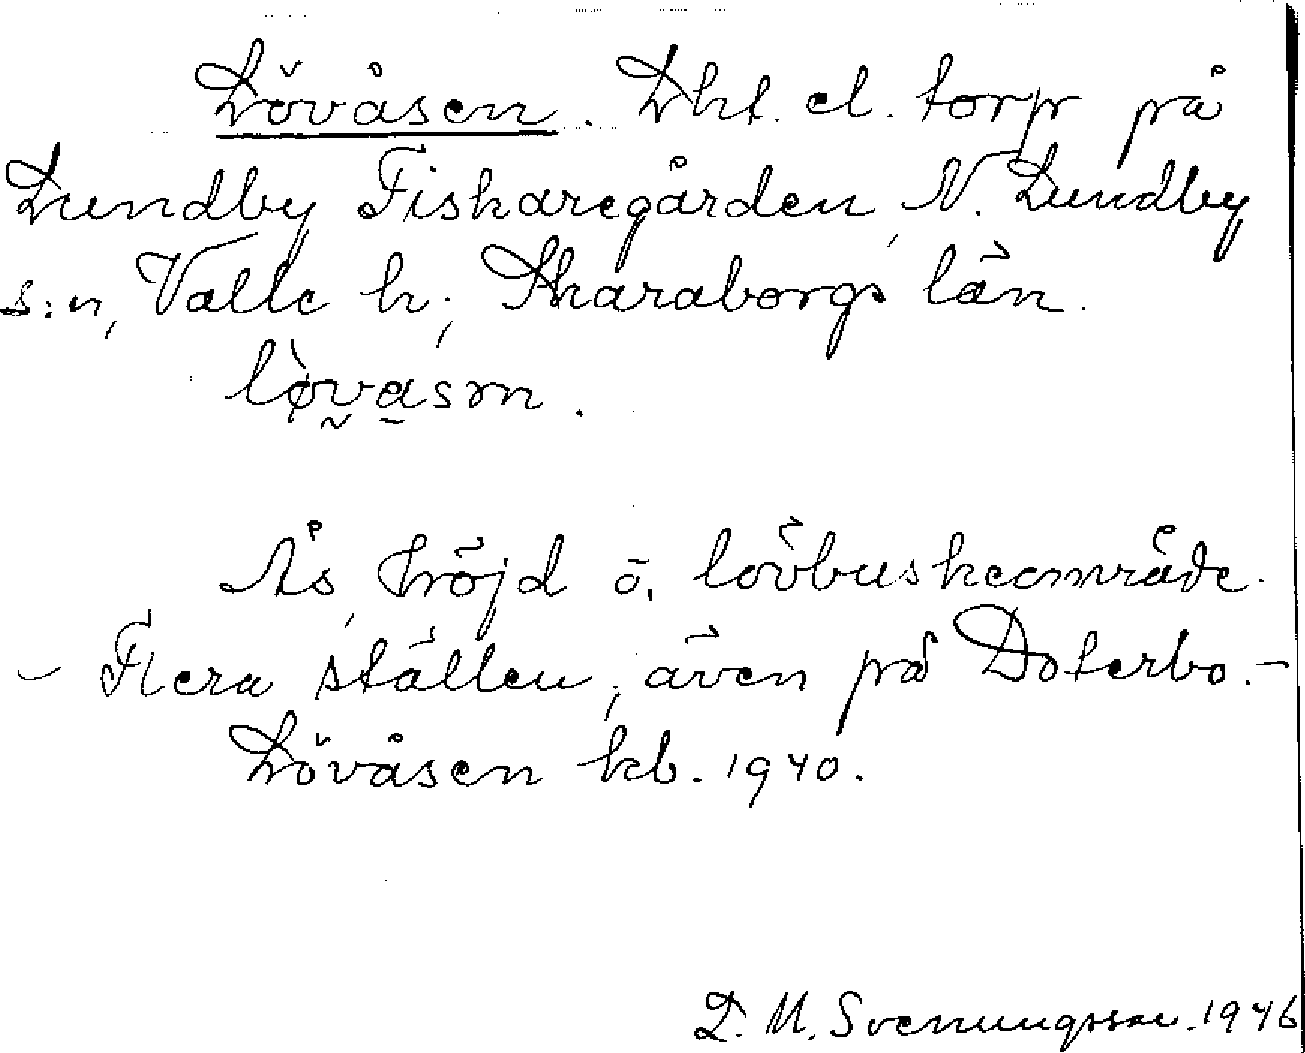 Lövåsen. Lht. el. torp på
Lundby Fiskaregården, N. Lundby
s:n, Valle h.; Skaraborgs län.
lø̀vasm.
Ås, höjd o. lövbuskeområde.
- Flera ställen, även på Doterbo. -
Lövåsen kb. 1940.
D. M. Svenungsson. 1946